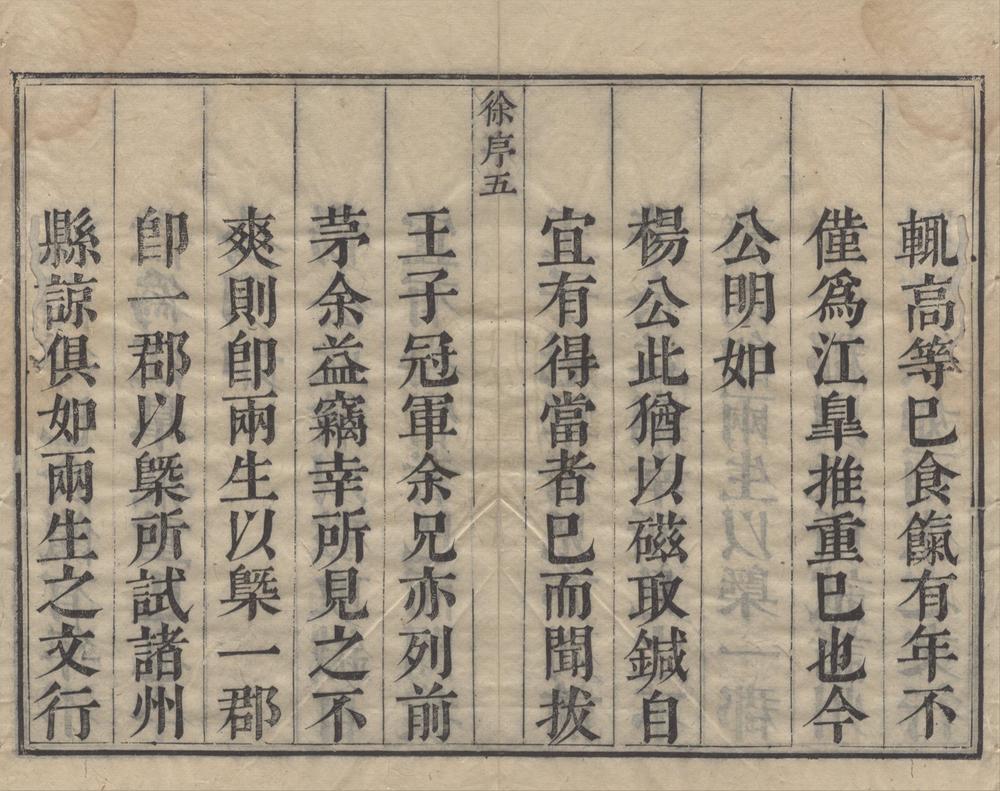 輒高等已食餼有年不
僅爲江臯推重已也今
公明如
楊公此猶以磁取鍼自
宜有得當者已而聞拔
徐序五
王子冠軍余兄亦列前
茅余益竊幸所見之不
爽則卽兩生以槩一郡
卽一郡以槩所試諸州
縣諒俱如兩生之文行